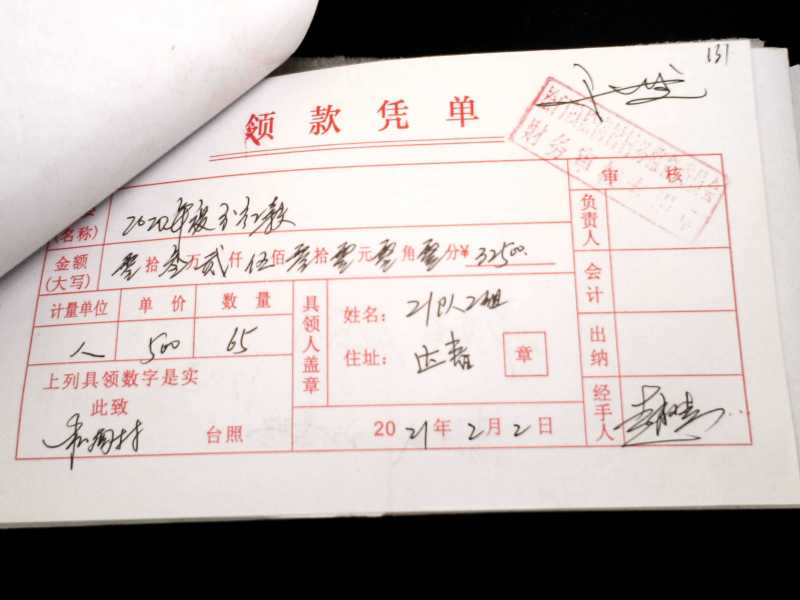 131
领款凭单
名称)
2020年度
金额
(大写)
零拾叁万贰仟伍佰零拾零元零角零分¥ 32500.
计量单位 单价 数量
人 500 65
上列具领数字是实
此致
台照
具领人盖章
姓名: 21队2组
住址:
章
2021年2月2日
审核
负责人
会计
出纳
经手人